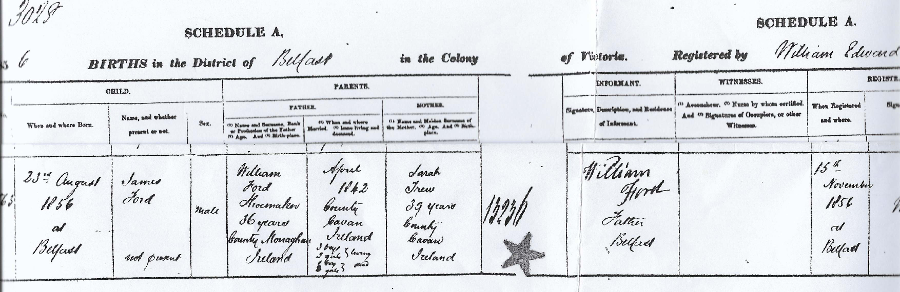 3028
SCHEDULE A,
SCHEDULE A.
6 BIRTHS in the District of Belfast in the Colony of Victoria. Registered by William Edward
CHILD.
PARENTS.
INFORMANT.
WITNESSES.
REGISTR
When and where Born.
Name, and whether present or not.
Sex.
FATHER.
(1) Name and Surname, Rank or Profession of the Father (2) Age. And (3) Birth-place.
(1) When and where Married. (2) Issue living and deceased.
MOTHER.
(1) Name and Maiden Surname of the Mother. (2) Age. And (3) Birth-place.
Signature, Description, and Residence of Informant.
(1) Accoucheur. (2) Nurse by whom certified. And (3) Signatures of Occupiers, or other Witnesses.
When Registered and where.
Sign
23rd August
1856
at
Belfast
James
Ford
not present
Male
William
Ford
Shoemaker
36 years
County Monaghan
Ireland
April
1842
County
Cavan
Ireland
living
Sarah
Trew
39 years
County
Cavan
Ireland
13236
William
Ford
Father
Belfast
15th
November
1856
at
Belfast